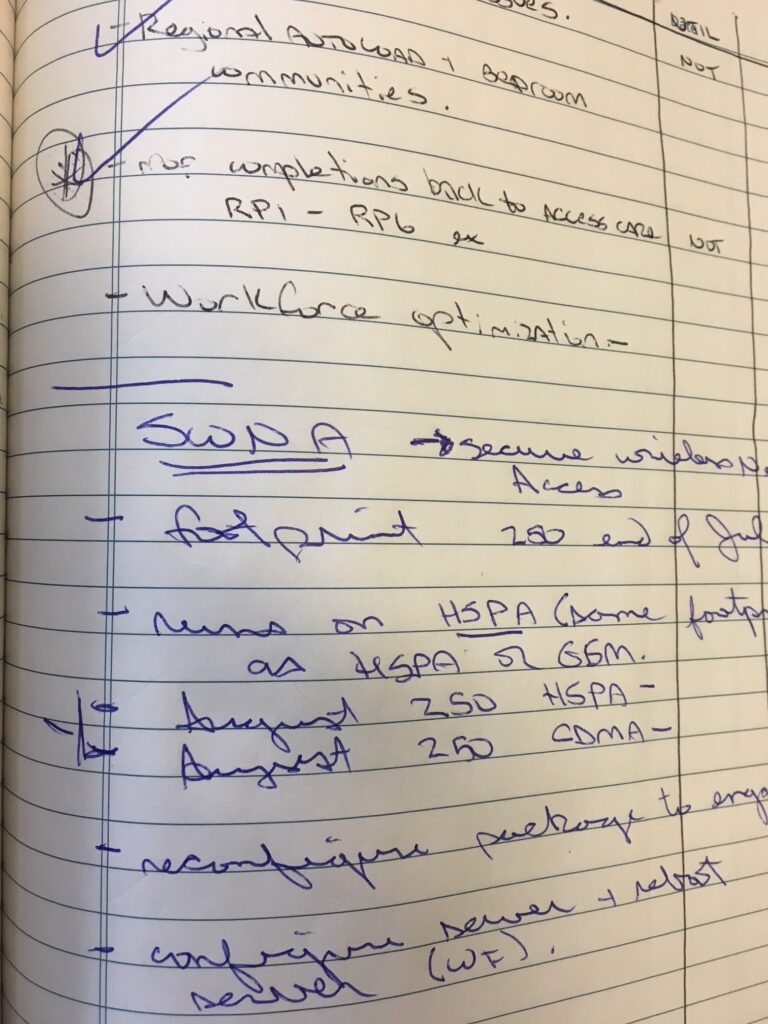 DETAIL
- Regional AUTOLOAD + BEDROOM NOT
communities.
- completions back to ACCESS CARE NOT
RP1 - RP6 ex
- Workforce optimization -
SWNA → secure wireless N
Access
- footprint 250 end of Jul
- runs on HSPA (same footp
as HSPA or GSM.
- August 250 HSPA -
- August 250 CDMA -
- reconfigure package to eng
- configure server + reboot
server (WF).